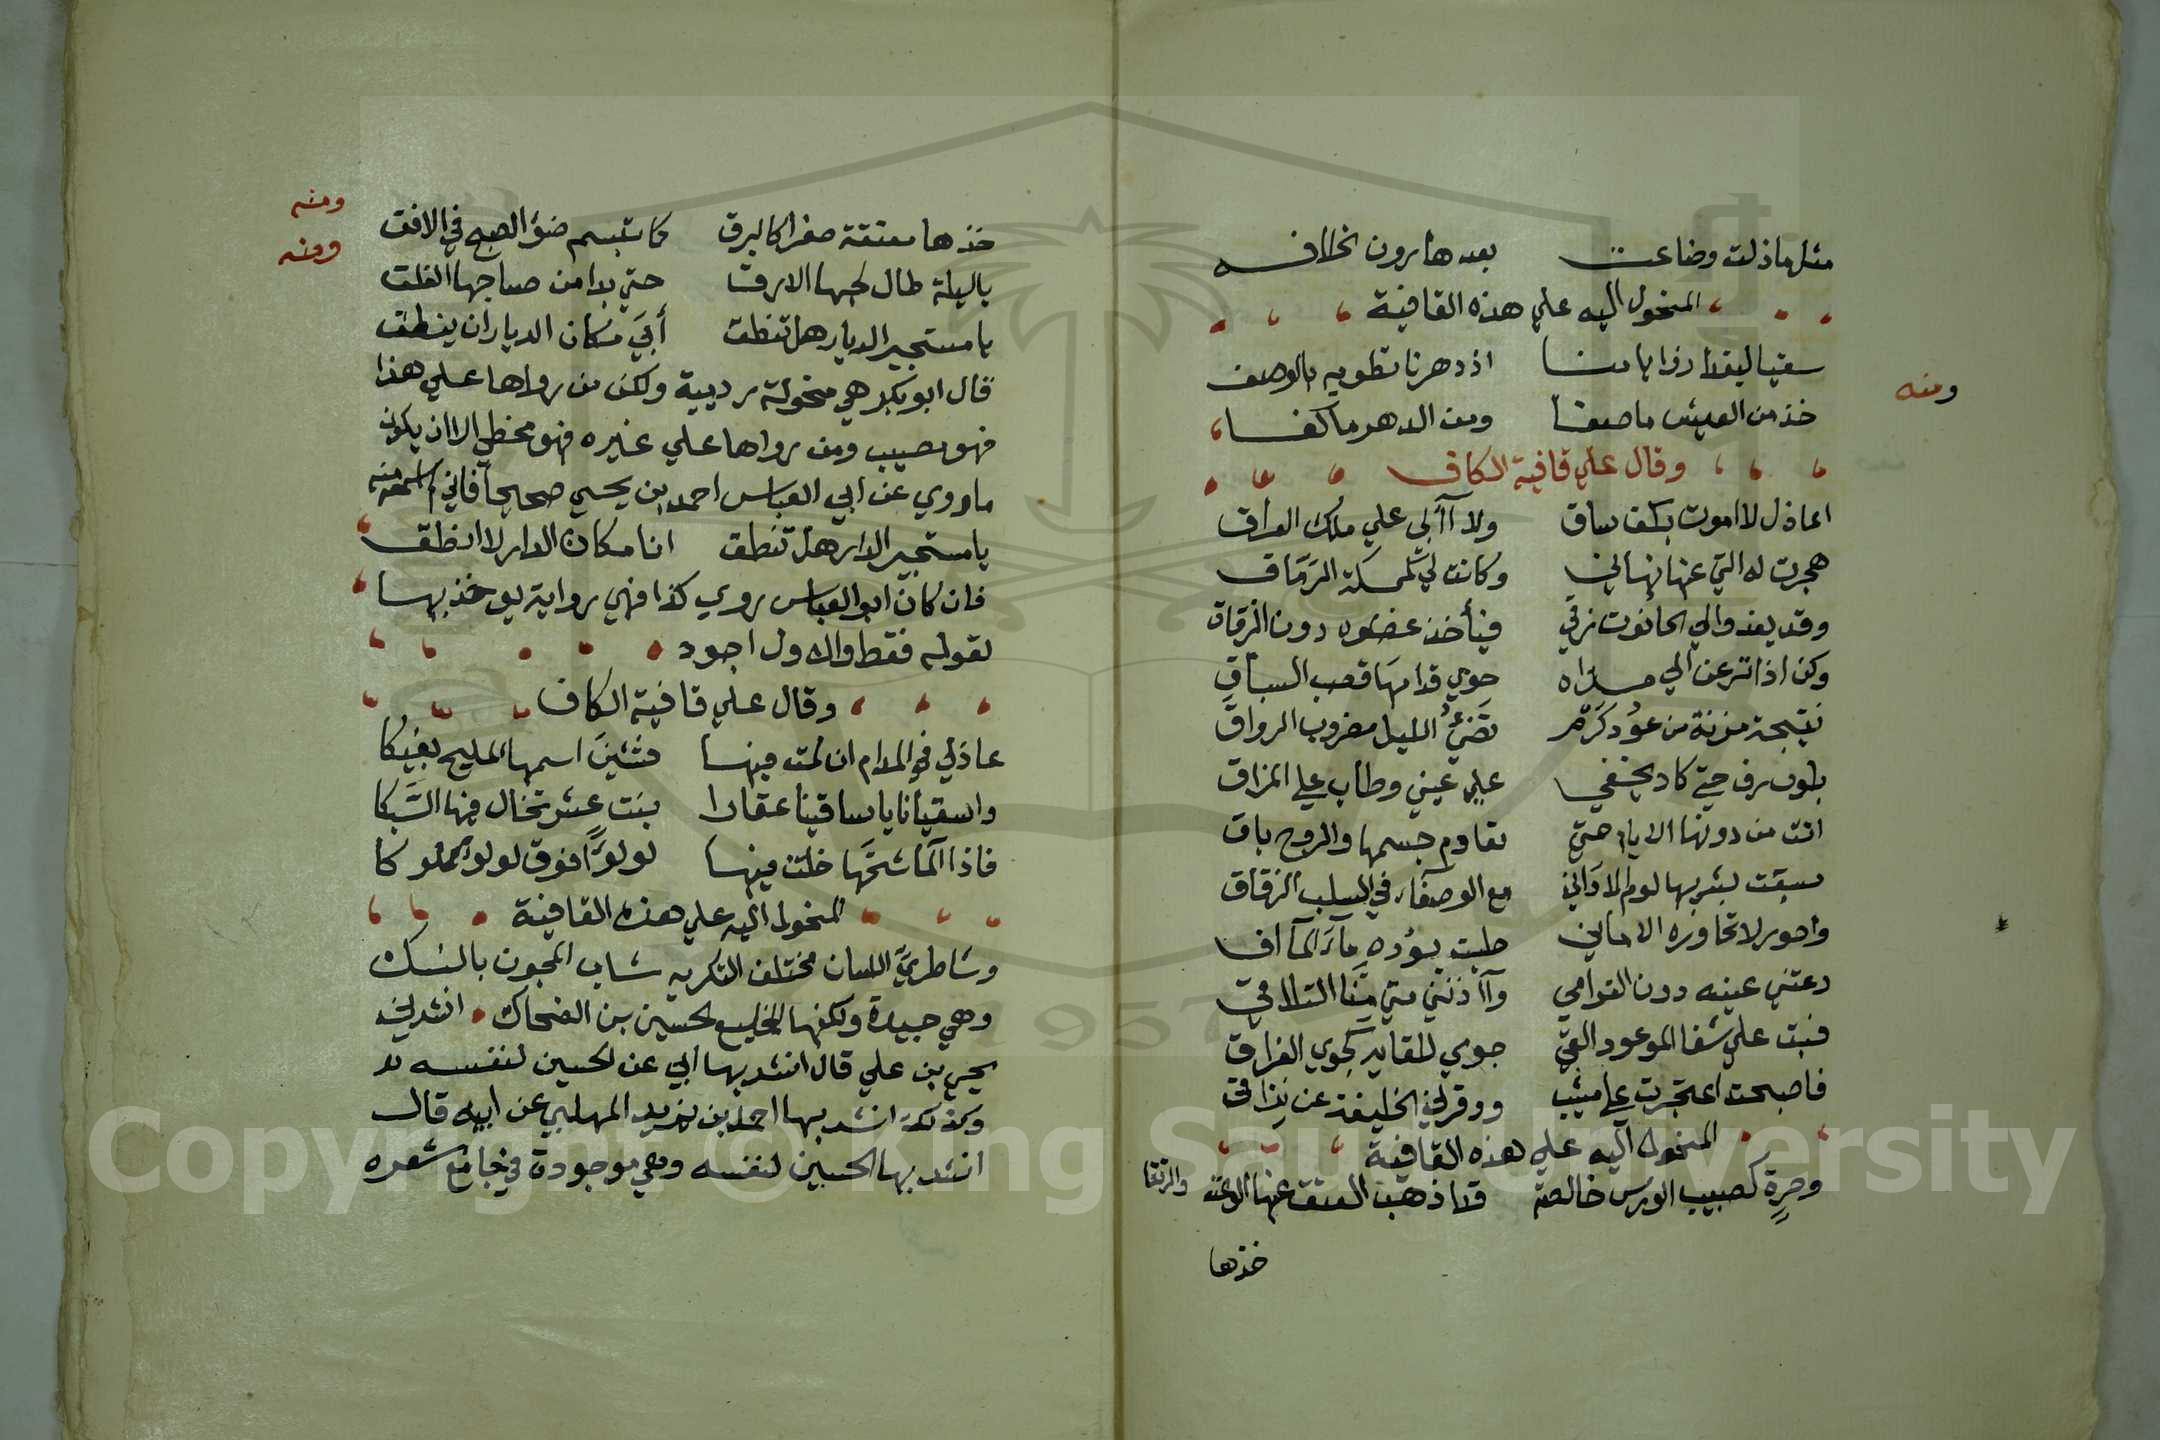 مثلما ذلت وضاعت بعد هارون الخلافه
المنحول اليه علي هذه القافية
ومنه
سقيا لبغداد وايامنا اذ دهرنا نطويه بالوصف
خذ من العيش ما صفا ومن الدهر ما كفا
وقال علي قافية الكاف
اعاذل لا اموت بكف ساق ولا آابي علي ملك العراق
هجرت له التي عنها نهاني وكانت لي لممسكة الرماق
وقد يغدوالي الحانوت زقي فيأخذ عضوه دون الزقاق
وكن اذا نزعن الي مداه حوي قدامها قصب السباق
نتيجة مزنة من عود كرم تضئ الليل مضروب الرواق
بلون رق حتي كاد يخفي علي عيني وطاب علي المذاق
اتت من دونها الايام حتي تقادم جسمها والروح باق
سبقت بشربها لوم الاداني مع الوصفاء في السلب الزقاق
واحور لا تجاوره الاماني
دعتني عينه دون القوافي وآاذنني التلاقي
فبت علي شفا الموعود القي جوي للقايه كجوي الفراق
فاصبحت اعتجرت علي مشيب ووقرني الخليفة عن نزاقي
المنحول اليه علي هذه القافية
وحرة كصبيب الورس خالصة قد اذهب العتق عنها الوعث والرنقا
خذها
ومنه
خذها معتقة صفرا كالبرق كما تبسم ضؤ الصبح في الافق
ومنه
ياليلة طال لحبها الارق حتي بدا من صباحها الفلق
يا مستجير الديار هل تنطق أبي مكان الديار ان ينطق
قال ابو بكر هي منحولة رديية ولكن من رواها علي هذا
فهو مصيب ومن رواها علي غيره فهو مخطي الا ان يكون
ما روي عن ابي العباس احمد بن يحيي صحيحا فاني لم اسمعه منه
يا مستجير الدار هل تنطق انا مكان الدار لا انطق
فان كان ابو العباس روي كذا فهي رواية يوخذ بها
لقوله فقط والاول اجود
وقال علي قافية الكاف
عاذلي في المدام ان لمت فيها اسمها المليح بفيكا
واسقيانا يا ساقينا عقارا بنت عشر تخال فيها الشبكا
فاذا الما شجها خلت فيها لولوا فوق لولو مملوكا
المنحول اليه علي هذه القافية
وشاطري اللسان مختلف التكريه شاب المجون بالنسك
وهي جيدة ولكنها للخليع الحسين بن الضحاك انشدني
يحيي بن علي قال انشد بها ابي عن الحسين لنفسه
وكذلك انشد بها احمد بن يزيد المهلبي عن ابيه قال
انشد بها الحسين لنفسه وهي موجودة في جامع شعره